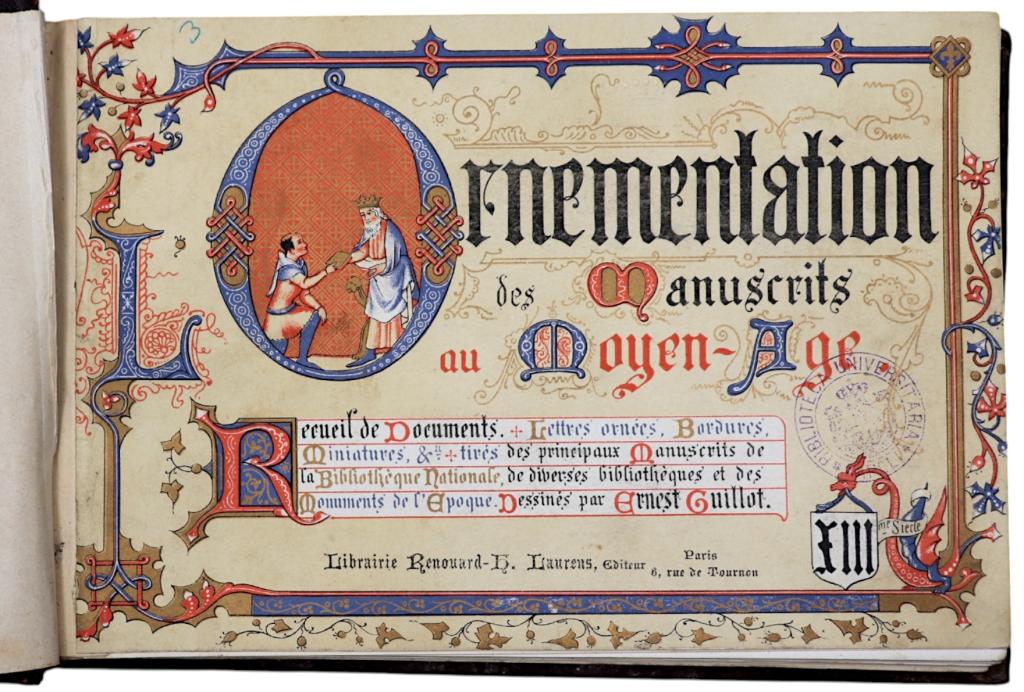 3
L'Ornementation
des Manuscrits
au Moyen-Age
Recueil de Documents. + Lettres ornées, Bordures,
Miniatures, &ª + tirés des principaux Manuscrits de
la Bibliothèque Nationale, de diverses bibliothèques et des
Monuments de l'Époque. Dessinés par Ernest Guillot.
BIBLIOTECA UNIVERSITARIA
XIII me Siècle
Librairie Renouard-H. Laurens, Editeur
Paris
6, rue de Tournon